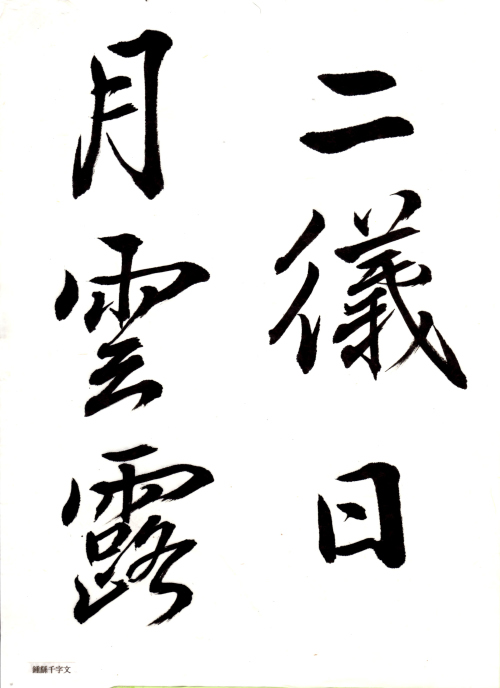 二儀日
月雲露
鍾繇千字文